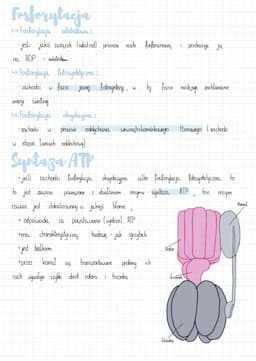 Fosforylacja
↳ Fosforylacja substratowa:
- jeśli jakiś związek (substrat) posiada resztę fosforanową i przekazuje ją
na ADP
↳ Fosforylacja fotosyntetyczna:
- zachodzi w fazie jasnej fotosyntezy, w tej fazie następuje pochłanianie
energii świetlnej
↳ Fosforylacja oksydacyjna:
- zachodzi w procesie oddychania wewnątrzkomórkowego tlenowego (zachodzi
w etapie łańcuch oddechowy)
Syntaza ATP
- jeśli zachodzi fosforylacja oksydacyjna albo fosforylacja fotosyntetyczna to
to jest zawsze powiązane z działaniem enzymu - syntaza ATP, ten enzym
zawsze jest zlokalizowany w jakiejś błonie,
- odpowiada za powstawanie (syntezę) ATP
- ma charakterystyczną budowę - jak grzybek
- jest białkiem
- przez kanał są transportowane protony ich
ruch powoduje szybki obrót rotora i trzonka
Kanał
Rotor
Trzonek
Główka